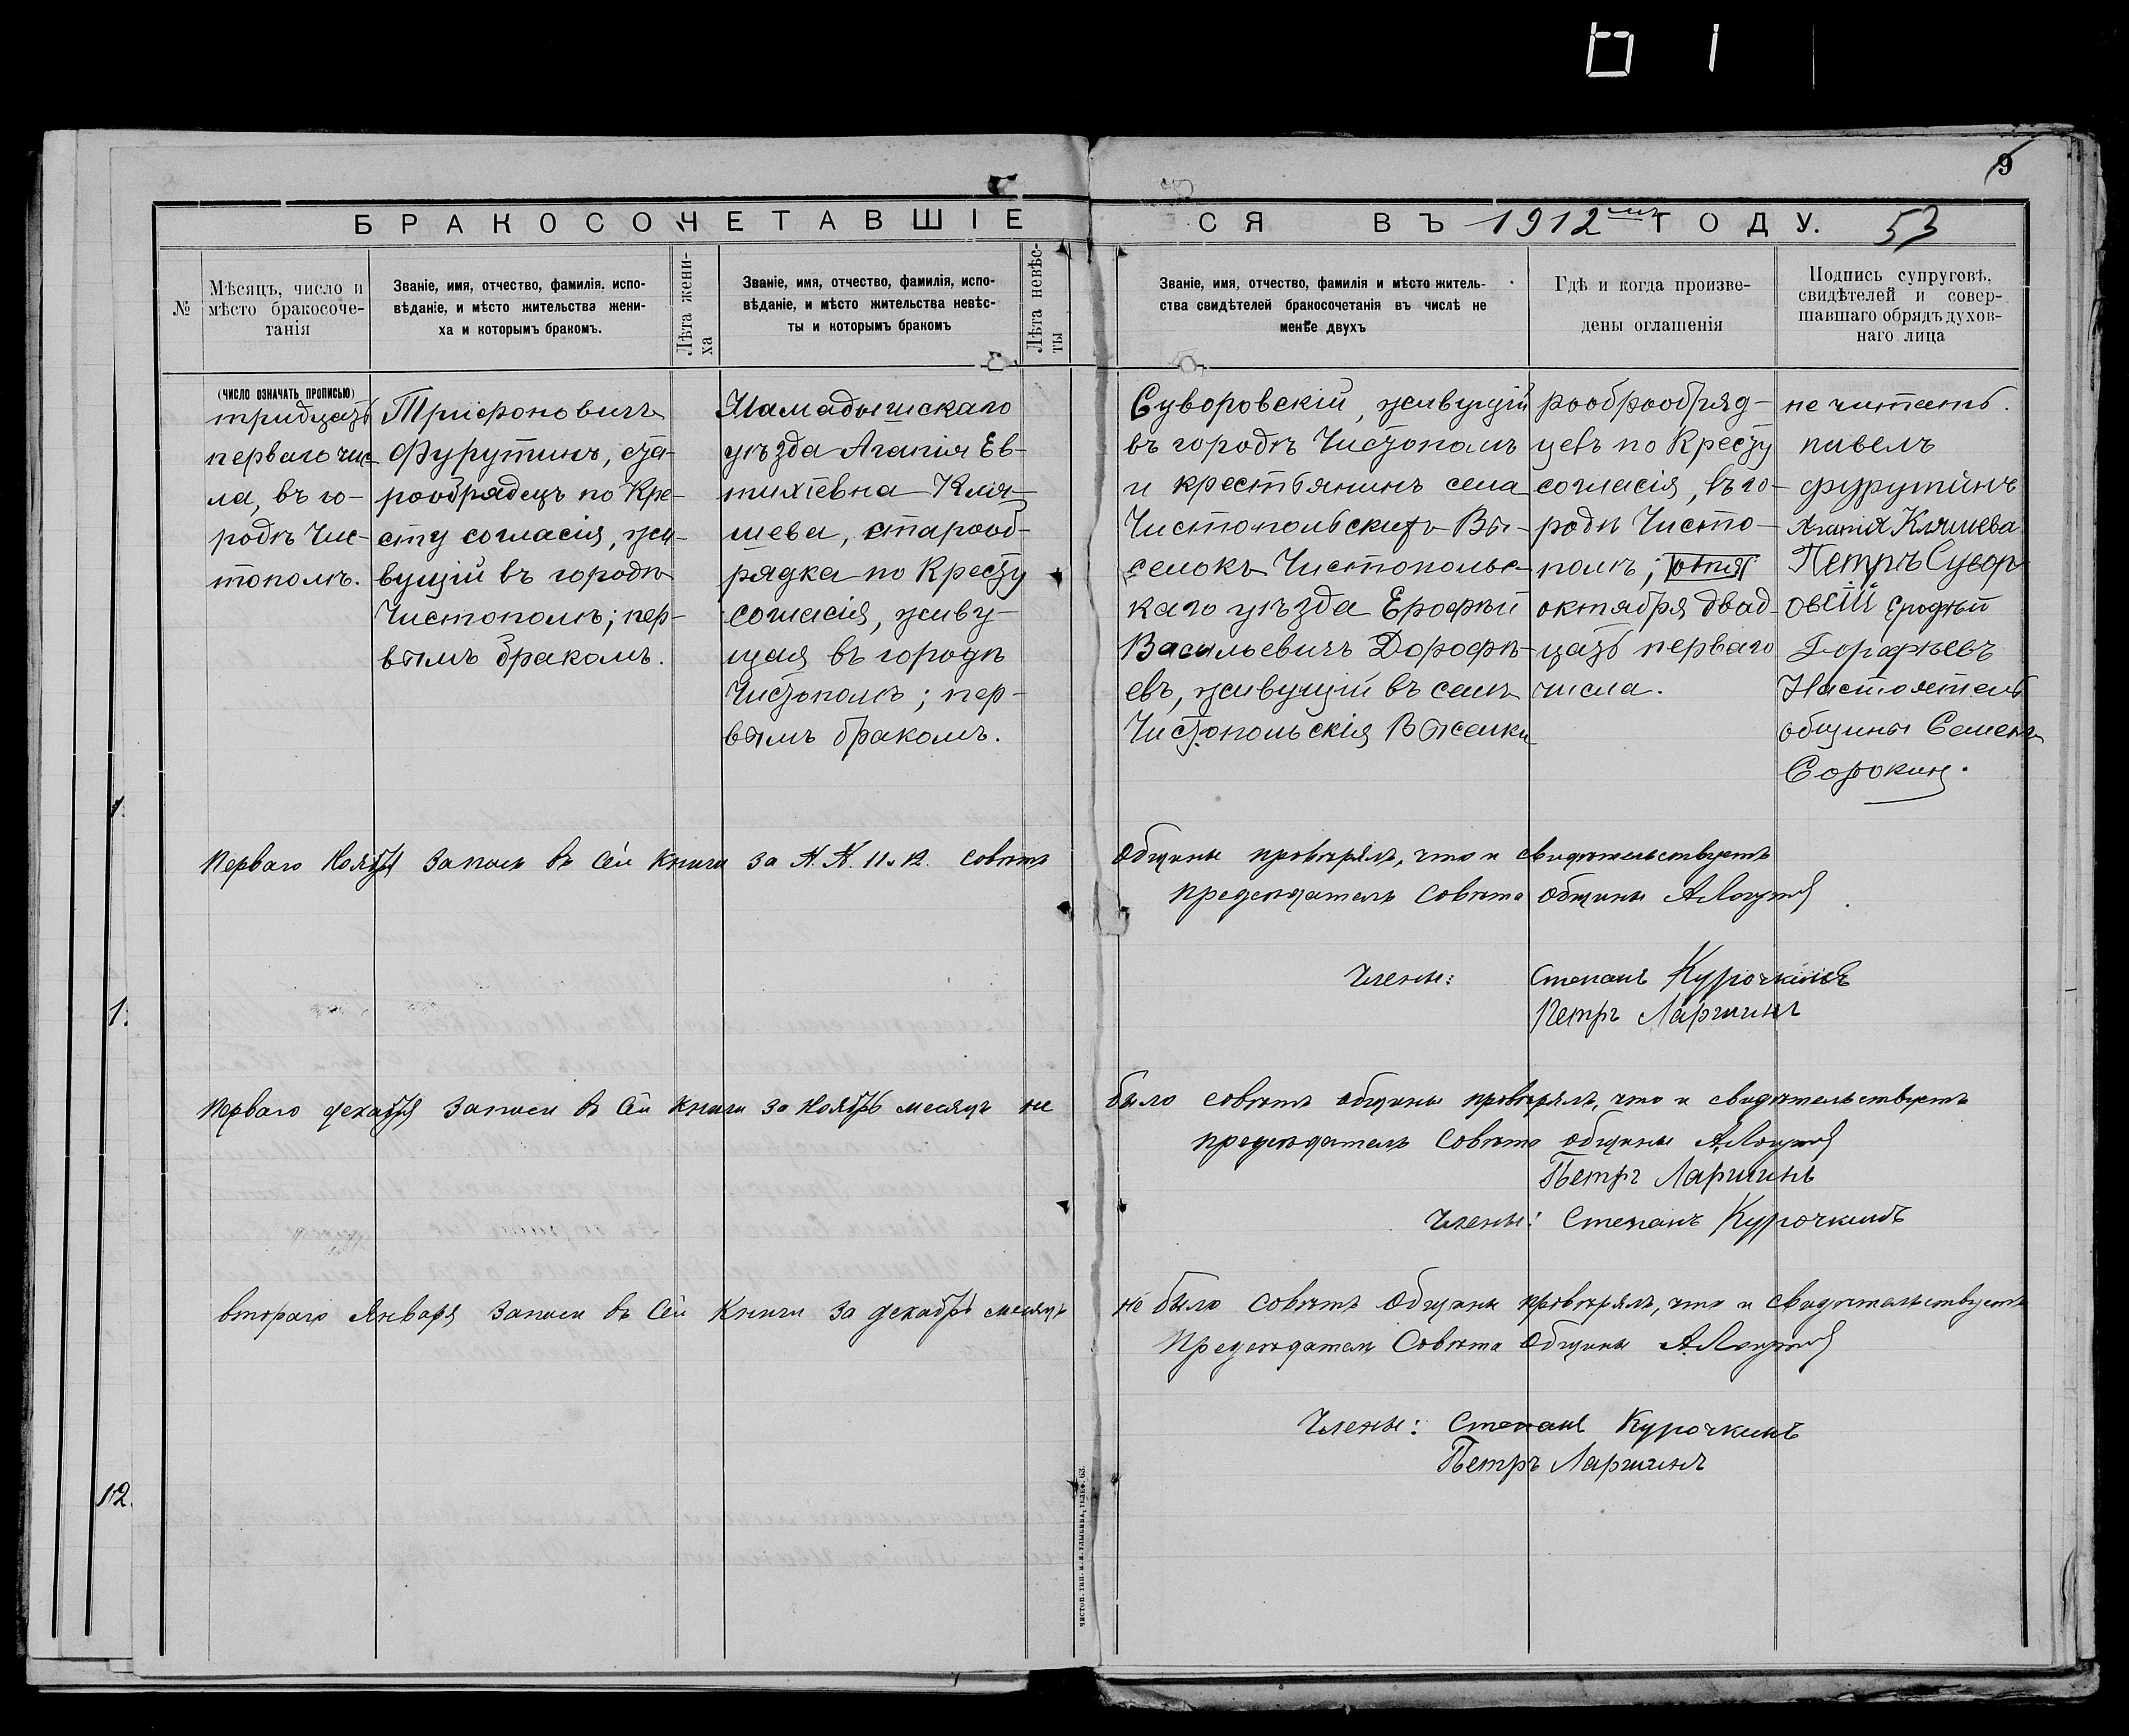 9
БРАКОСОЧЕТАВШІЕСЯ ВЪ 1912мъ ГОДУ. 53
№
Мѣсяцъ, число и
мѣсто бракосоче-
танія
Званіе, имя, отчество, фамилія, испо-
вѣданіе, и мѣсто жительства жени-
ха и которымъ бракомъ.
Лѣта жени-
ха
Званіе, имя, отчество, фамилія, испо-
вѣданіе, и мѣсто жительства невѣс-
ты и которымъ бракомъ
Лѣта невѣс-
ты
Званіе, имя, отчество, фамилія и мѣсто житель-
ства свидѣтелей бракосочетанія въ числѣ не
менѣе двухъ
Гдѣ и когда произве-
дены оглашенія
Подпись супруговъ,
свидѣтелей и совер-
шавшаго обрядъ духов-
наго лица
(ЧИСЛО ОЗНАЧАТЬ ПРОПИСЬЮ)
тридцать
перваго чис-
ла, въ го-
родѣ Чис-
тополѣ.
Трифоновичъ
Фурутинъ, ста-
рообрядецъ по Кре-
сту согласія, жи-
вущій въ городѣ
Чистополѣ; пер-
вымъ бракомъ.
Мамадышскаго
уѣзда Агапія Ев-
тихіевна Кля-
шева, старооб-
рядка по Кресту
согласія, живу-
щая въ городѣ
Чистополѣ; пер-
вымъ бракомъ.
Суворовскій, живущій
въ городѣ Чистополѣ
и крестьянинъ села
Чистопольскихъ Вы-
селокъ Чистопольс-
каго уѣзда Ерофѣй
Васильевичъ Дорофѣ-
евъ, живущій въ селѣ
Чистопольскія Выселки
рооброобряд-
цевъ по Кресту
согласія, въ го-
родѣ Чисто-
полѣ;
октября двад-
цать перваго
числа.
не читаетъ.
павелъ
фурутинъ
Агапія Кляшева
Петръ Сувор
овскій Ерофѣй
Дорофѣевъ
Настоятель
общины Семенъ
Сорокинъ.
1.
1.
12.
Перваго Ноября записи въ сей книги за №.№. 11 и 12. совѣтъ общины провѣрялъ, что и свидѣтельствуетъ
предсѣдатель совѣта общины
Члены: Степанъ Курочкинъ
Петръ Ларшинъ
Перваго декабря записи въ сей книги за Ноябрь месяцъ не было совѣтъ общины провѣрялъ, что и свидѣтельствуетъ
предсѣдатель совѣта общины
Петръ Ларшинъ
Члены: Степанъ Курочкинъ
втораго Января записи въ сей книги за декабрь месяцъ не было совѣтъ общины провѣрялъ, что и свидѣтельствуетъ
Предсѣдатель Совѣта общины
Члены: Степанъ Курочкинъ
Петръ Ларшинъ